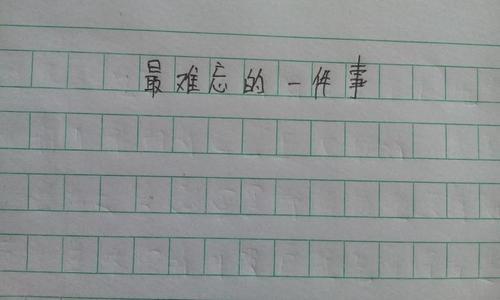 最难忘的一件事